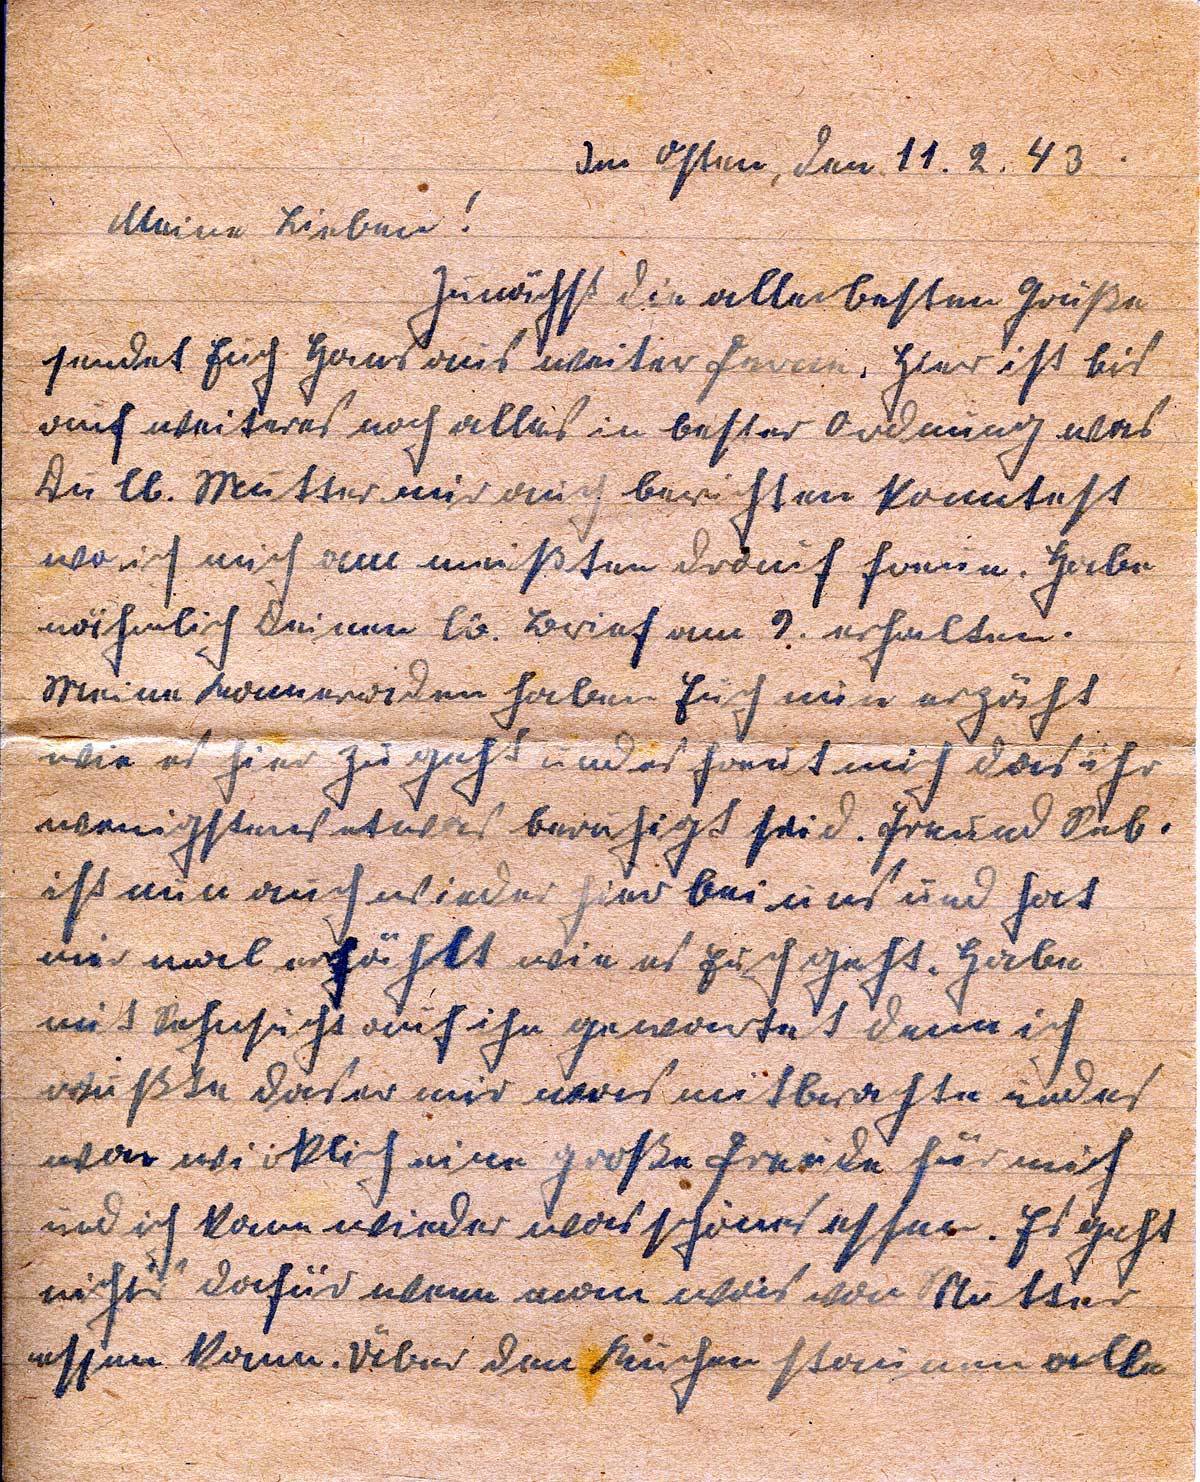 Im Osten, den 11. 2. 43.
Meine Lieben!
Zunächst die allerbesten Grüße
sendet Euch Hans aus weiter Ferne. Hier ist bis
auf weiteres noch alles in bester Ordnung was
Du lb. Mutter mir auch berichten konntest
wo ich mich am meißten drauf freue. Habe
nähmlich Deinen lb. Brief am 9. erhalten.
Meine Kameraden haben Euch nun erzäht
wie es hier zu geht und es freut mich das ihr
wenigstens etwas beruhigt seid. Freund Seb.
ist nun auch wieder hier bei uns und hat
mir mal erzählt wie es Euch geht. Habe
mit Sehnsucht auf ihn gewartet denn ich
wußte das er mir was mitbrachte und es
war wirklich eine große Freude für mich
und ich kann wieder was schönes essen. Es geht
nichts dafür wenn man was von Mutter
essen kann. Über den Kuchen staunen alle